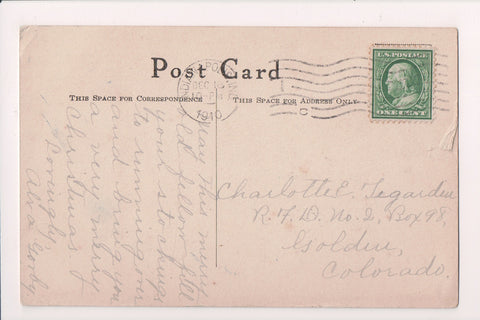 Post Card
THIS SPACE FOR CORRESPONDENCE
THIS SPACE FOR ADDRESS ONLY
DEC
1910
U.S. POSTAGE
ONE CENT
May this merry
old fellow fill
your stockings
to running over
and bring you
a very merry
Christmas.
Lovingly
Alva Gorby.
Charlotte E. Tegarden
R.F.D. No. 2, Box 98,
Golden,
Colorado.